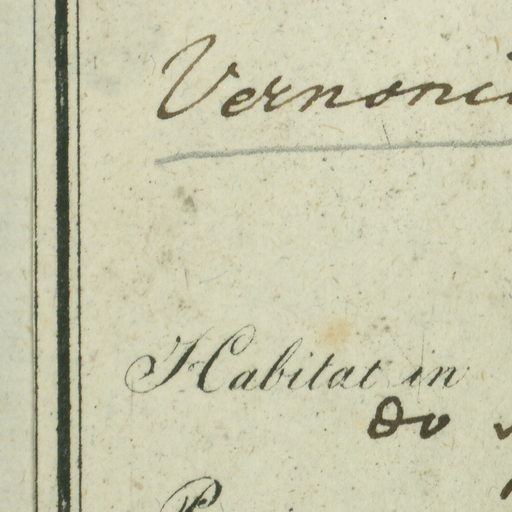 Vernoni
Habitat in
do